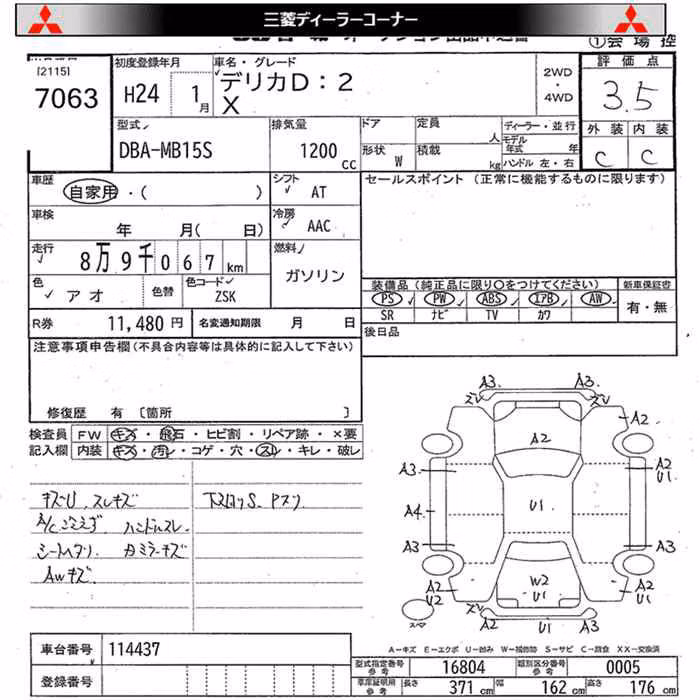 三菱ディーラーコーナー
①会場控
[2115]
7063
初度登録年月
H24 1月
車名・グレード
デリカD:2
X
2WD
・
4WD
評価点
3.5
外装 内装
C C
型式
DBA-MB15S
排気量
1200 cc
ドア
定員 人
形状 W
積載 kg
ディーラー・並行
モデル年式 年
ハンドル 左・右
車歴
自家用・( )
シフト
AT
セールスポイント (正常に機能するものに限ります)
車検
年 月( 日)
冷房
AAC
走行
8万9千067km
燃料
ガソリン
色
アオ
色替
色コード
ZSK
装備品(純正品に限り○をつけてください)
新車保証書
PS PW ABS エアB AW
有・無
SR ナビ TV カワ
R券 11,480円
名変通知期限 月 日
後日品
注意事項申告欄(不具合内容等は具体的に記入して下さい)
修復歴 有 [箇所 ]
検査員 FW キズ・飛石・ヒビ割・リペア跡・×要
記入欄 内装 キズ・汚レ・コゲ・穴・スレ・キレ・破レ
キズU スレキズ
A/C ハンドルスレ
シートヘタリ カミラーキズ
AWキズ
下スロットS
A3 A3
A2
A2
A3 A2 U1
A4 U1
A3 A3
W2
U1
A2 U2 A2 U1
スペア
A2 U1 A3
A-キズ E-エクボ U-凹み W-補修跡 S-サビ C-腐食 XX-交換済
車台番号 114437
登録番号
型式指定番号参考 16804
類別区分番号参考 0005
車庫証明用参考 長さ 371cm 幅 162cm 高さ 176cm